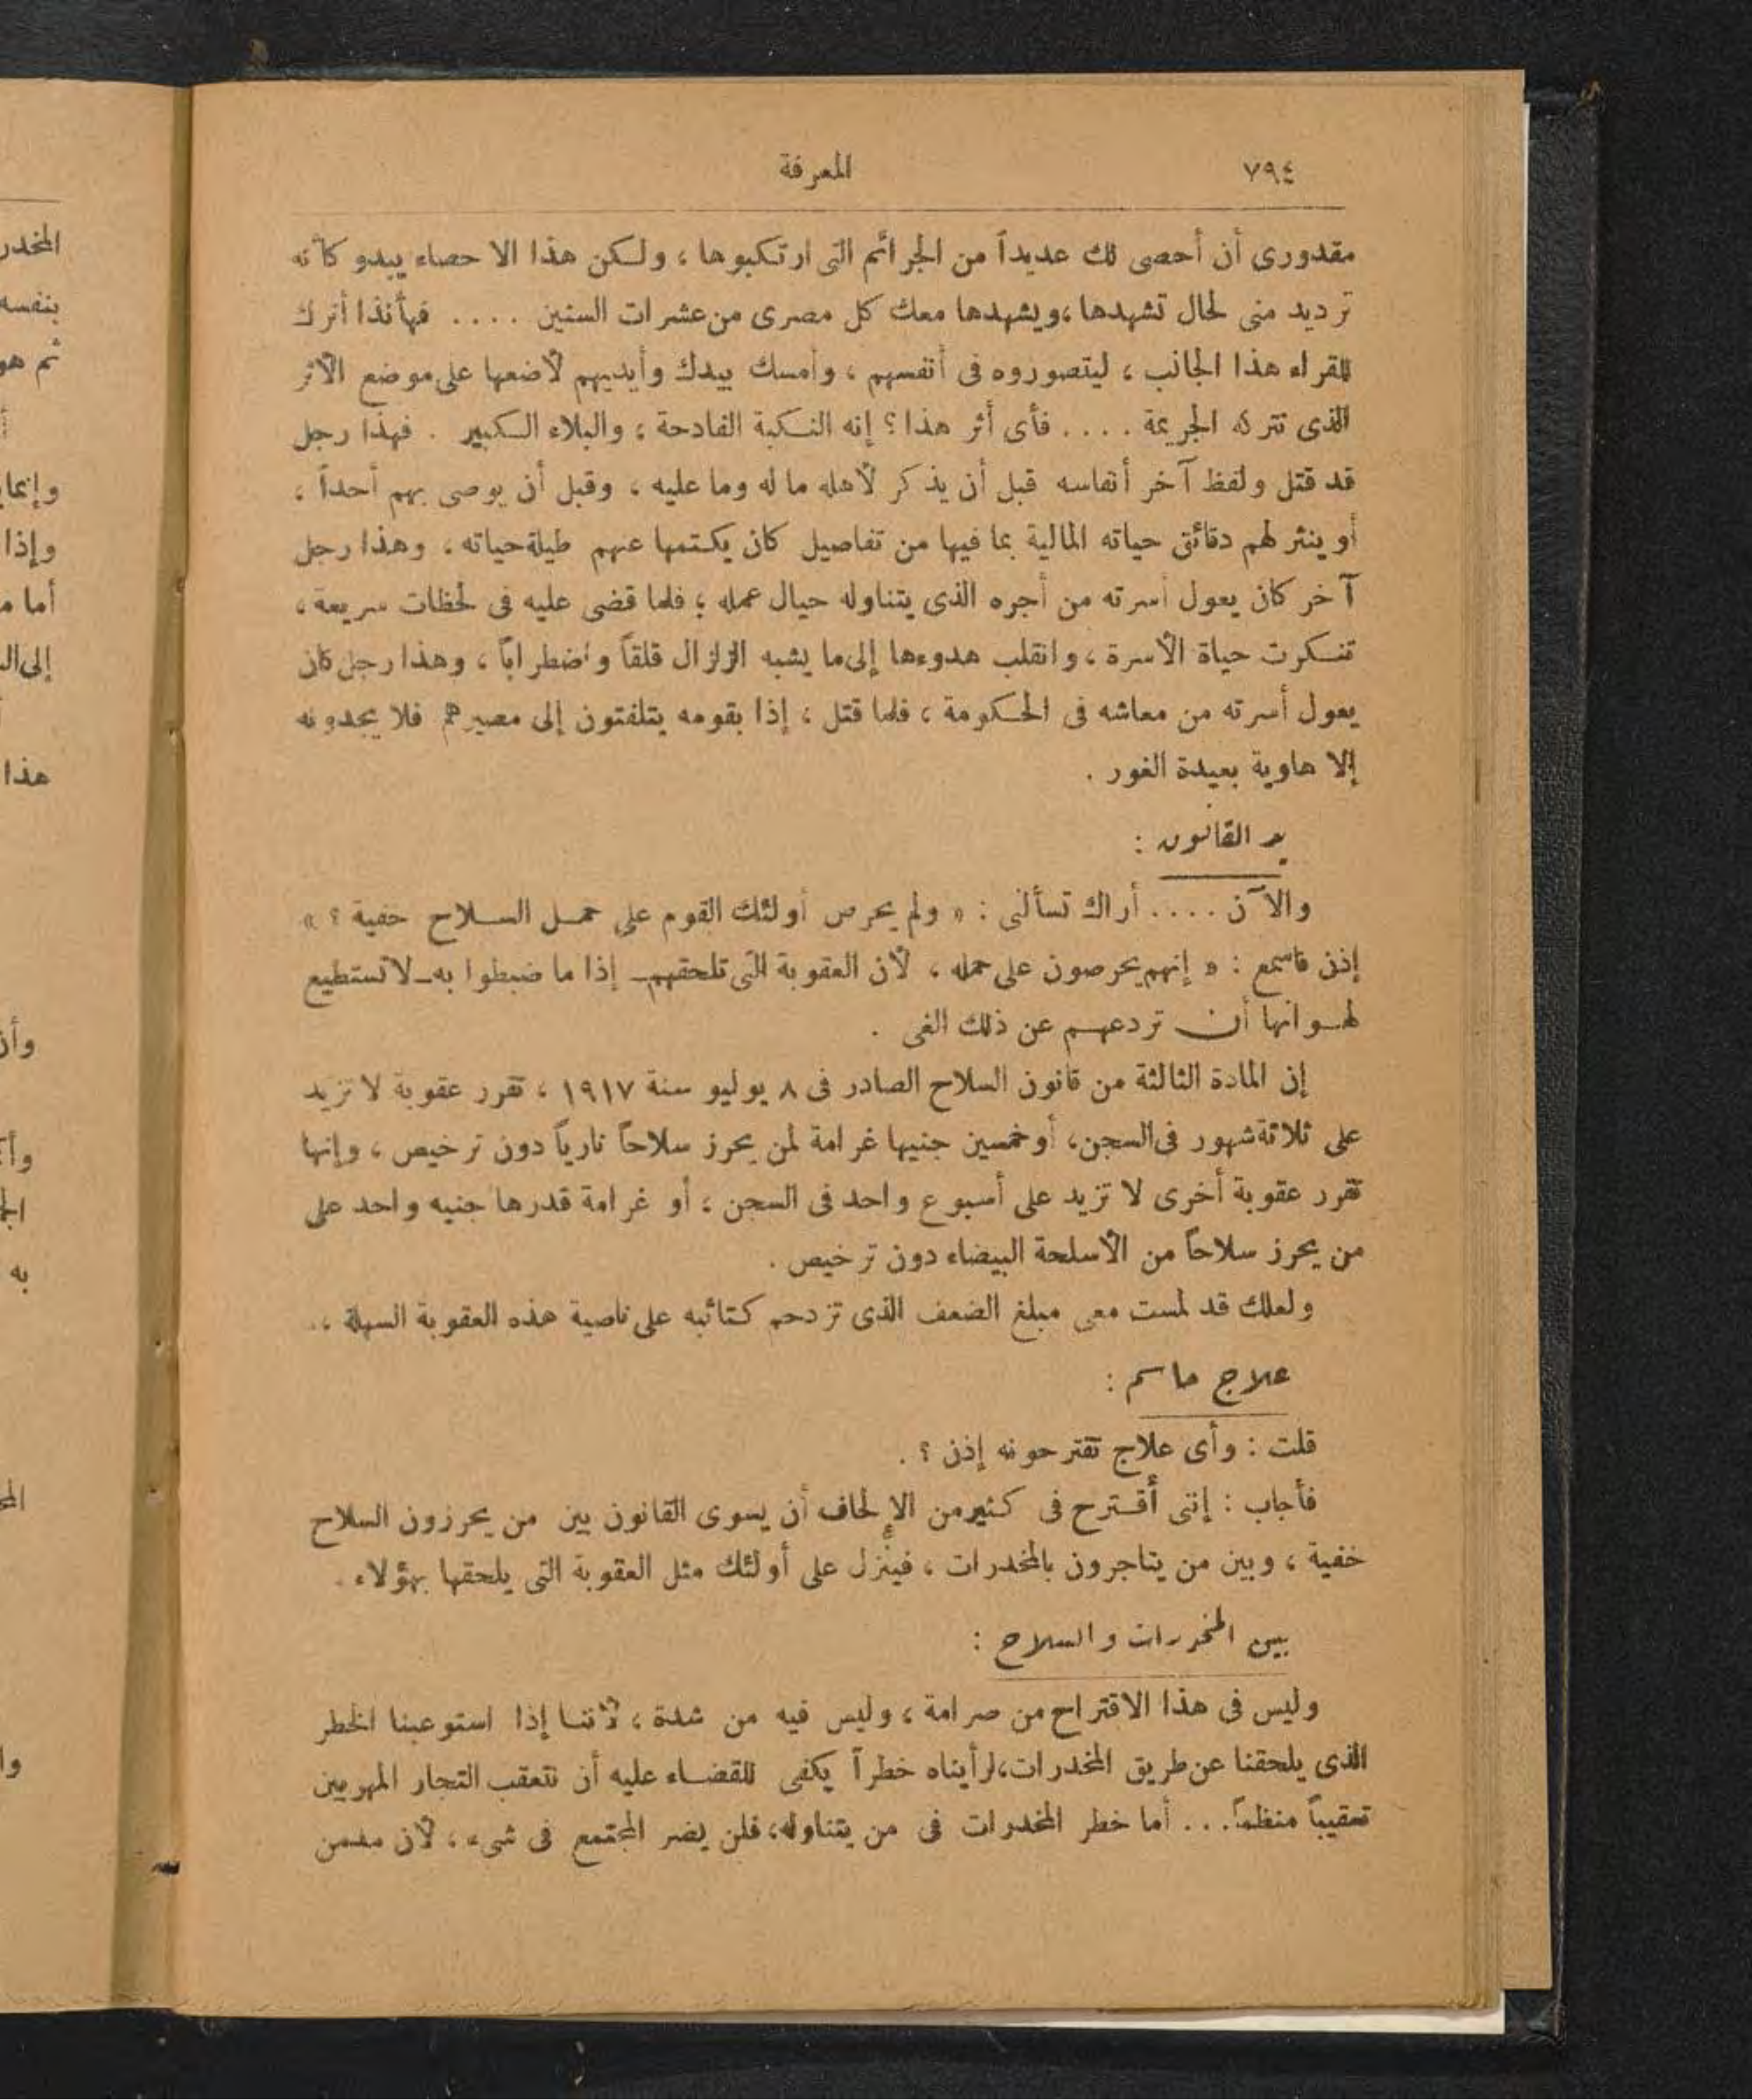 ٧٩٤ المعرفة
مقدورى أن أحصى لك عديداً من الجرائم التى ارتكبوها ، ولكن هذا الاحصاء يبدو كأنه
ترديد منى لحال تشهدها ، ويشهدها معك كل مصرى من عشرات السنين .... فهأنذا أترك
للقراء هذا الجانب ، ليتصوروه فى أنفسهم ، وأمسك بيدك وأيديهم لأضعها على موضع الأثر
الذى تتركه الجريمة .... فأى أثر هذا ؟ إنه النكبة الفادحة ، والبلاء الكبير . فهذا رجل
قد قتل ولفظ آخر أنفاسه قبل أن يذكر لأهله ما له وما عليه ، وقبل أن يوصى بهم أحداً ،
أو ينثر لهم دقائق حياته المالية بما فيها من تفاصيل كان يكتمها عنهم طيلة حياته ، وهذا رجل
آخر كان يعول أسرته من أجره الذى يتناوله حيال عمله ؛ فلما قضى عليه فى لحظات سريعة ،
تنكرت حياة الأسرة ، وانقلب هدوءها إلى ما يشبه الزلزال قلقاً واضطراباً ، وهذا رجل كان
يعول أسرته من معاشه فى الحكومة ، فلما قتل ، إذا بقومه يتلفتون إلى مصيرهم فلا يجدونه
إلا هاوية بعيدة الغور .
يد القانون :
والآن .... أراك تسألنى : « ولم يحرص أولئك القوم على حمل السلاح خفية ؟ »
إذن فاسمع : « إنهم يحرصون على حمله ، لأن العقوبة التى تلحقهم ــ إذا ما ضبطوا به ــ لا تستطيع
لهوانها أن تردعهم عن ذلك الغى .
إن المادة الثالثة من قانون السلاح الصادر فى ٨ يوليو سنة ١٩١٧ ، تقرر عقوبة لا تزيد
على ثلاثة شهور فى السجن، أو خمسين جنيها غرامة لمن يحرز سلاحاً نارياً دون ترخيص ، وإنها
تقرر عقوبة أخرى لا تزيد على أسبوع واحد فى السجن ، أو غرامة قدرها جنيه واحد على
من يحرز سلاحاً من الأسلحة البيضاء دون ترخيص .
ولعلك قد لمست معى مبلغ الضعف الذى تزدحم كتائبه على ناصية هذه العقوبة السهلة ،.
علاج حاسم :
قلت : وأى علاج تقترحونه إذن ؟ .
فأجاب : إننى أقترح فى كثير من الإلحاف أن يسوى القانون بين من يحرزون السلاح
خفية ، وبين من يتاجرون بالمخدرات ، فينزل على أولئك مثل العقوبة التى يلحقها بهؤلاء .
بين المخدرات والسلاح :
وليس فى هذا الاقتراح من صرامة ، وليس فيه من شدة ، لأننا إذا استوعبنا الخطر
الذى يلحقنا عن طريق المخدرات، لرأيناه خطراً يكفى للقضاء عليه أن نتعقب التجار المهربين
تعقيباً منظماً... أما خطر المخدرات فى من يتناوله، فلن يضر المجتمع فى شىء ، لأن مدمن
المخدر
بنفسه
ثم هو
وإذا
إلى
هذا
به